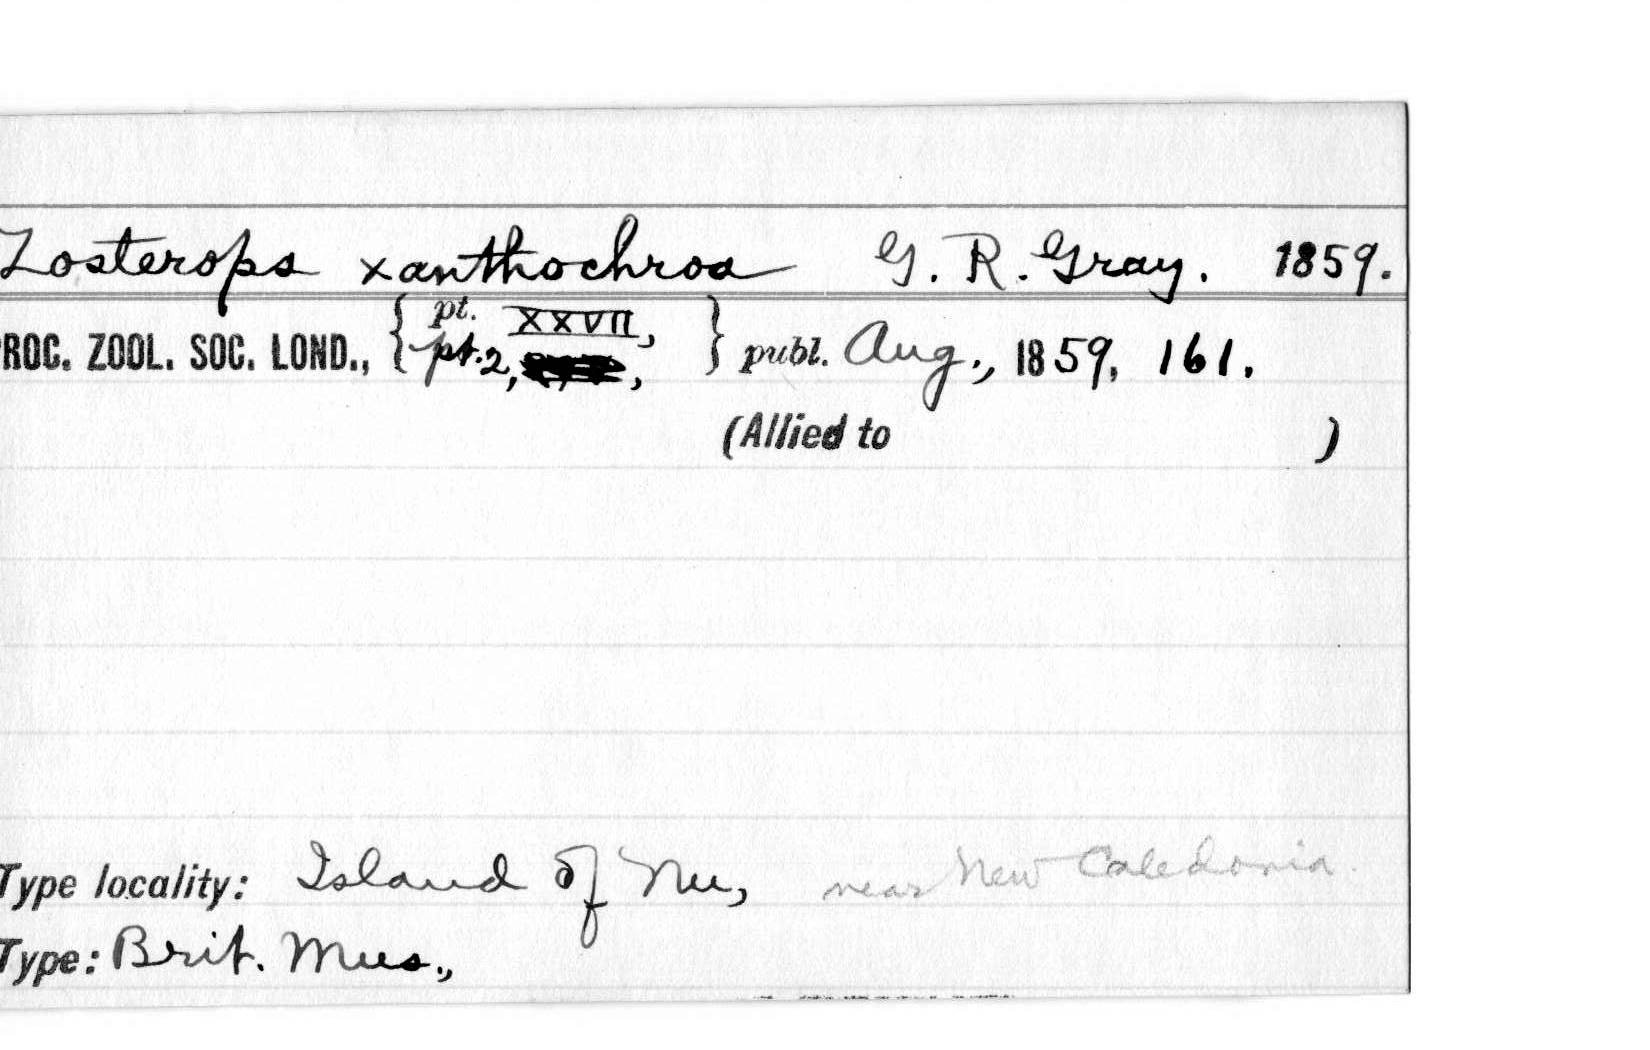 Zosterops xanthochroa G. R. Gray. 1859.
PROC. ZOOL. SOC. LOND., { pt. XXVII,
pt. 2, , } publ. Aug., 1859, 161.
(Allied to )
Type locality: Island of Nu, near New Caledonia.
Type: Brit. Mus.,